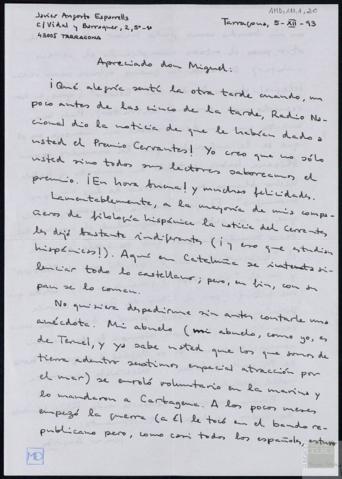 Javier Angosto Esparrells
c/ Vidal y Barraquer, 2, 5º-4ª
43005 TARRAGONA
AMD,111,1,20
Tarragona, 5-XII-93
Apreciado don Miguel:
¡Qué alegría sentí la otra tarde cuando, un
poco antes de las cinco de la tarde, Radio Na-
cional dio la noticia de que le habían dado a
usted el Premio Cervantes! Yo creo que no sólo
usted sino todos sus lectores saboreamos el
premio. ¡En hora buena! y muchas felicidades.
Lamentablemente, a la mayoría de mis compa-
ñeros de filología hispánica la noticia del Cervantes
les dejó bastante indiferentes (¡y eso que estudian
hispánicas!). Aquí en Cataluña se intenta si-
lenciar todo lo castellano; pero, en fin, con su
pan se lo coman.
No quisiera despedirme sin antes contarle una
anécdota. Mi abuelo (mi abuelo, como yo, es
de Teruel, y ya sabe usted que los que somos de
tierra adentro sentimos especial atracción por
el mar) se enroló voluntario en la marina y
lo mandaron a Cartagena. A los pocos meses
empezó la guerra (a él le tocó en el bando re-
publicano pero, como casi todos los españoles, estuvo
MD